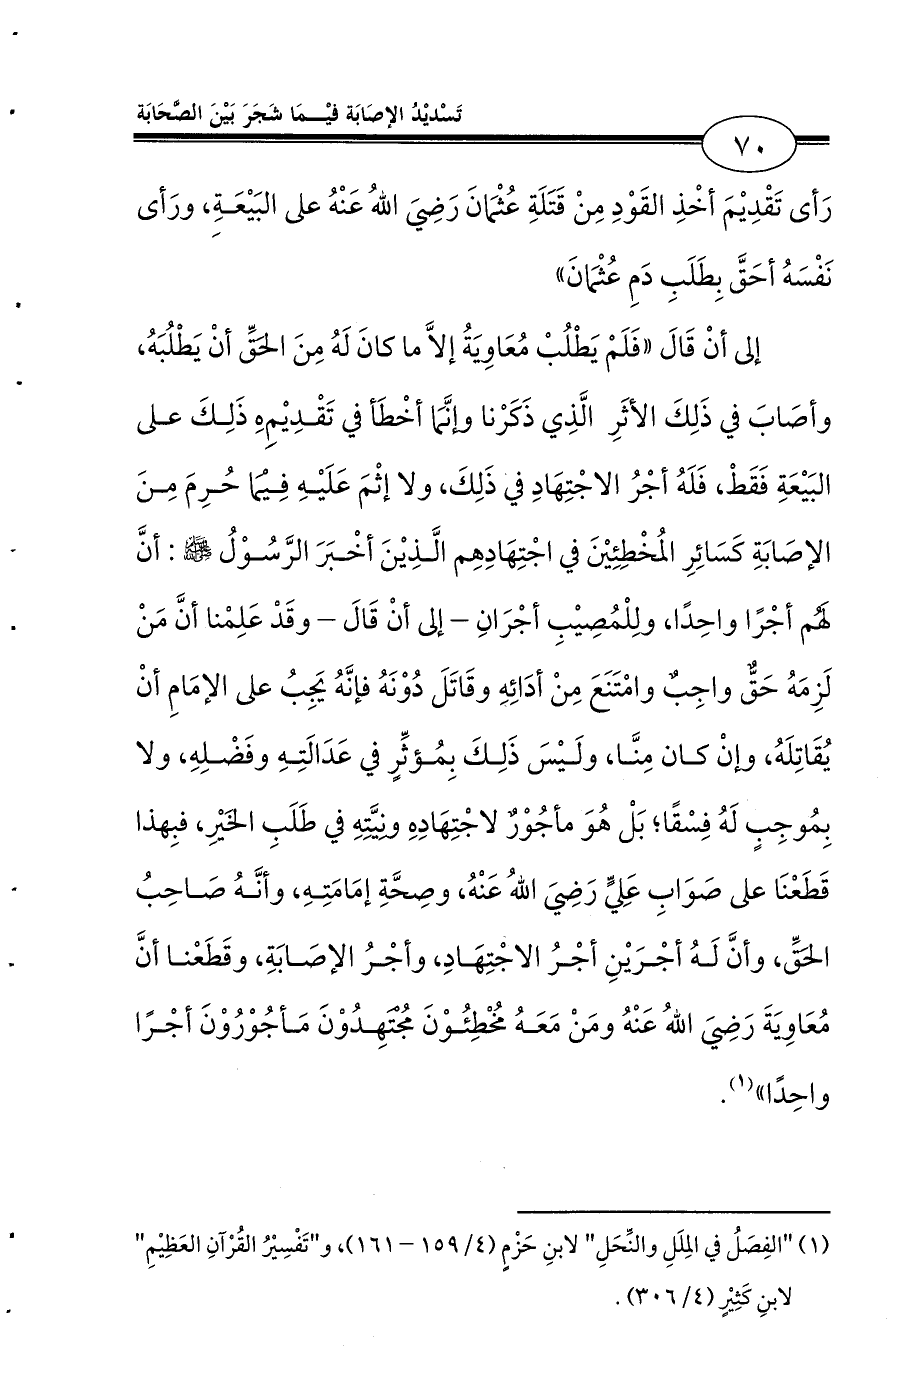 تَسْدِيْدُ الإصَابَة فيْـمَا شَجَرَ بَيْنَ الصَّحَابَة
٧٠
رَأى تَقْدِيْمَ أخْذِ القَوْدِ مِنْ قَتَلَةِ عُثْمَانَ رَضِيَ اللهُ عَنْهُ على البَيْعَـةِ، ورَأى
نَفْسَهُ أحَقَّ بِطَلَبِ دَمِ عُثْمَانَ»
إلى أنْ قَالَ «فَلَمْ يَطْلُبْ مُعَاوِيَةُ إلاَّ ما كانَ لَهُ مِنَ الحَقِّ أنْ يَطْلُبَهُ،
وأصَابَ في ذَلِكَ الأثَرِ الَّذِي ذَكَرْنا وإنَّمَا أخْطَأ في تَقْـدِيْمِهِ ذَلِـكَ عـلى
البَيْعَةِ فَقَطْ، فَلَهُ أجْرُ الاجْتِهَادِ في ذَلِكَ، ولا إثْمَ عَلَيْـهِ فِـيْمَا حُـرِمَ مِـنَ
الإصَابَةِ كَسَائِرِ المُخْطِئِيْنَ في اجْتِهَادِهِم الَّـذِيْنَ أخْـبَرَ الرَّسُـوْلُ ﷺ : أنَّ
لَهُم أجْرًا واحِدًا، ولِلْمُصِيْبِ أجْرَانِ – إلى أنْ قَالَ – وقَدْ عَلِمْنا أنَّ مَنْ
لَزِمَهُ حَقٌّ واجِبٌ وامْتَنَعَ مِنْ أدَائِهِ وقَاتَلَ دُوْنَهُ فإنَّهُ يَجِبُ على الإمَامِ أنْ
يُقَاتِلَهُ، وإنْ كـان مِنَّـا، ولَـيْسَ ذَلِـكَ بِمُـؤثِّرٍ في عَدَالَتِـهِ وفَضْـلِهِ، ولا
بِمُوجِبٍ لَهُ فِسْقًا؛ بَلْ هُوَ مأجُوْرٌ لاجْتِهَادِهِ ونِيَّتِهِ في طَلَبِ الخَيْرِ، فبِهذا
قَطَعْنَا على صَوَابِ عَلِيٍّ رَضِيَ اللهُ عَنْهُ، وصِحَّةِ إمَامَتِـهِ، وأنَّـهُ صَـاحِبُ
الحَقِّ، وأنَّ لَـهُ أجْـرَيْنِ أجْـرُ الاجْتِهَـادِ، وأجْـرُ الإصَـابَةِ، وقَطَعْنـا أنَّ
مُعَاوِيَةَ رَضِيَ اللهُ عَنْهُ ومَنْ مَعَـهُ مُخْطِئُـوْنَ مُجْتَهِـدُوْنَ مَـأجُوْرُوْنَ أجْـرًا
واحِدًا»(١).
(١) "الفِصَلُ في المِلَلِ والنِّحَلِ" لابنِ حَزْمٍ (٤/ ١٥٩ – ١٦١)، و"تَفْسِيْرُ القُرْآنِ العَظِيْمِ"
لابنِ كَثِيْرٍ (٤/ ٣٠٦).